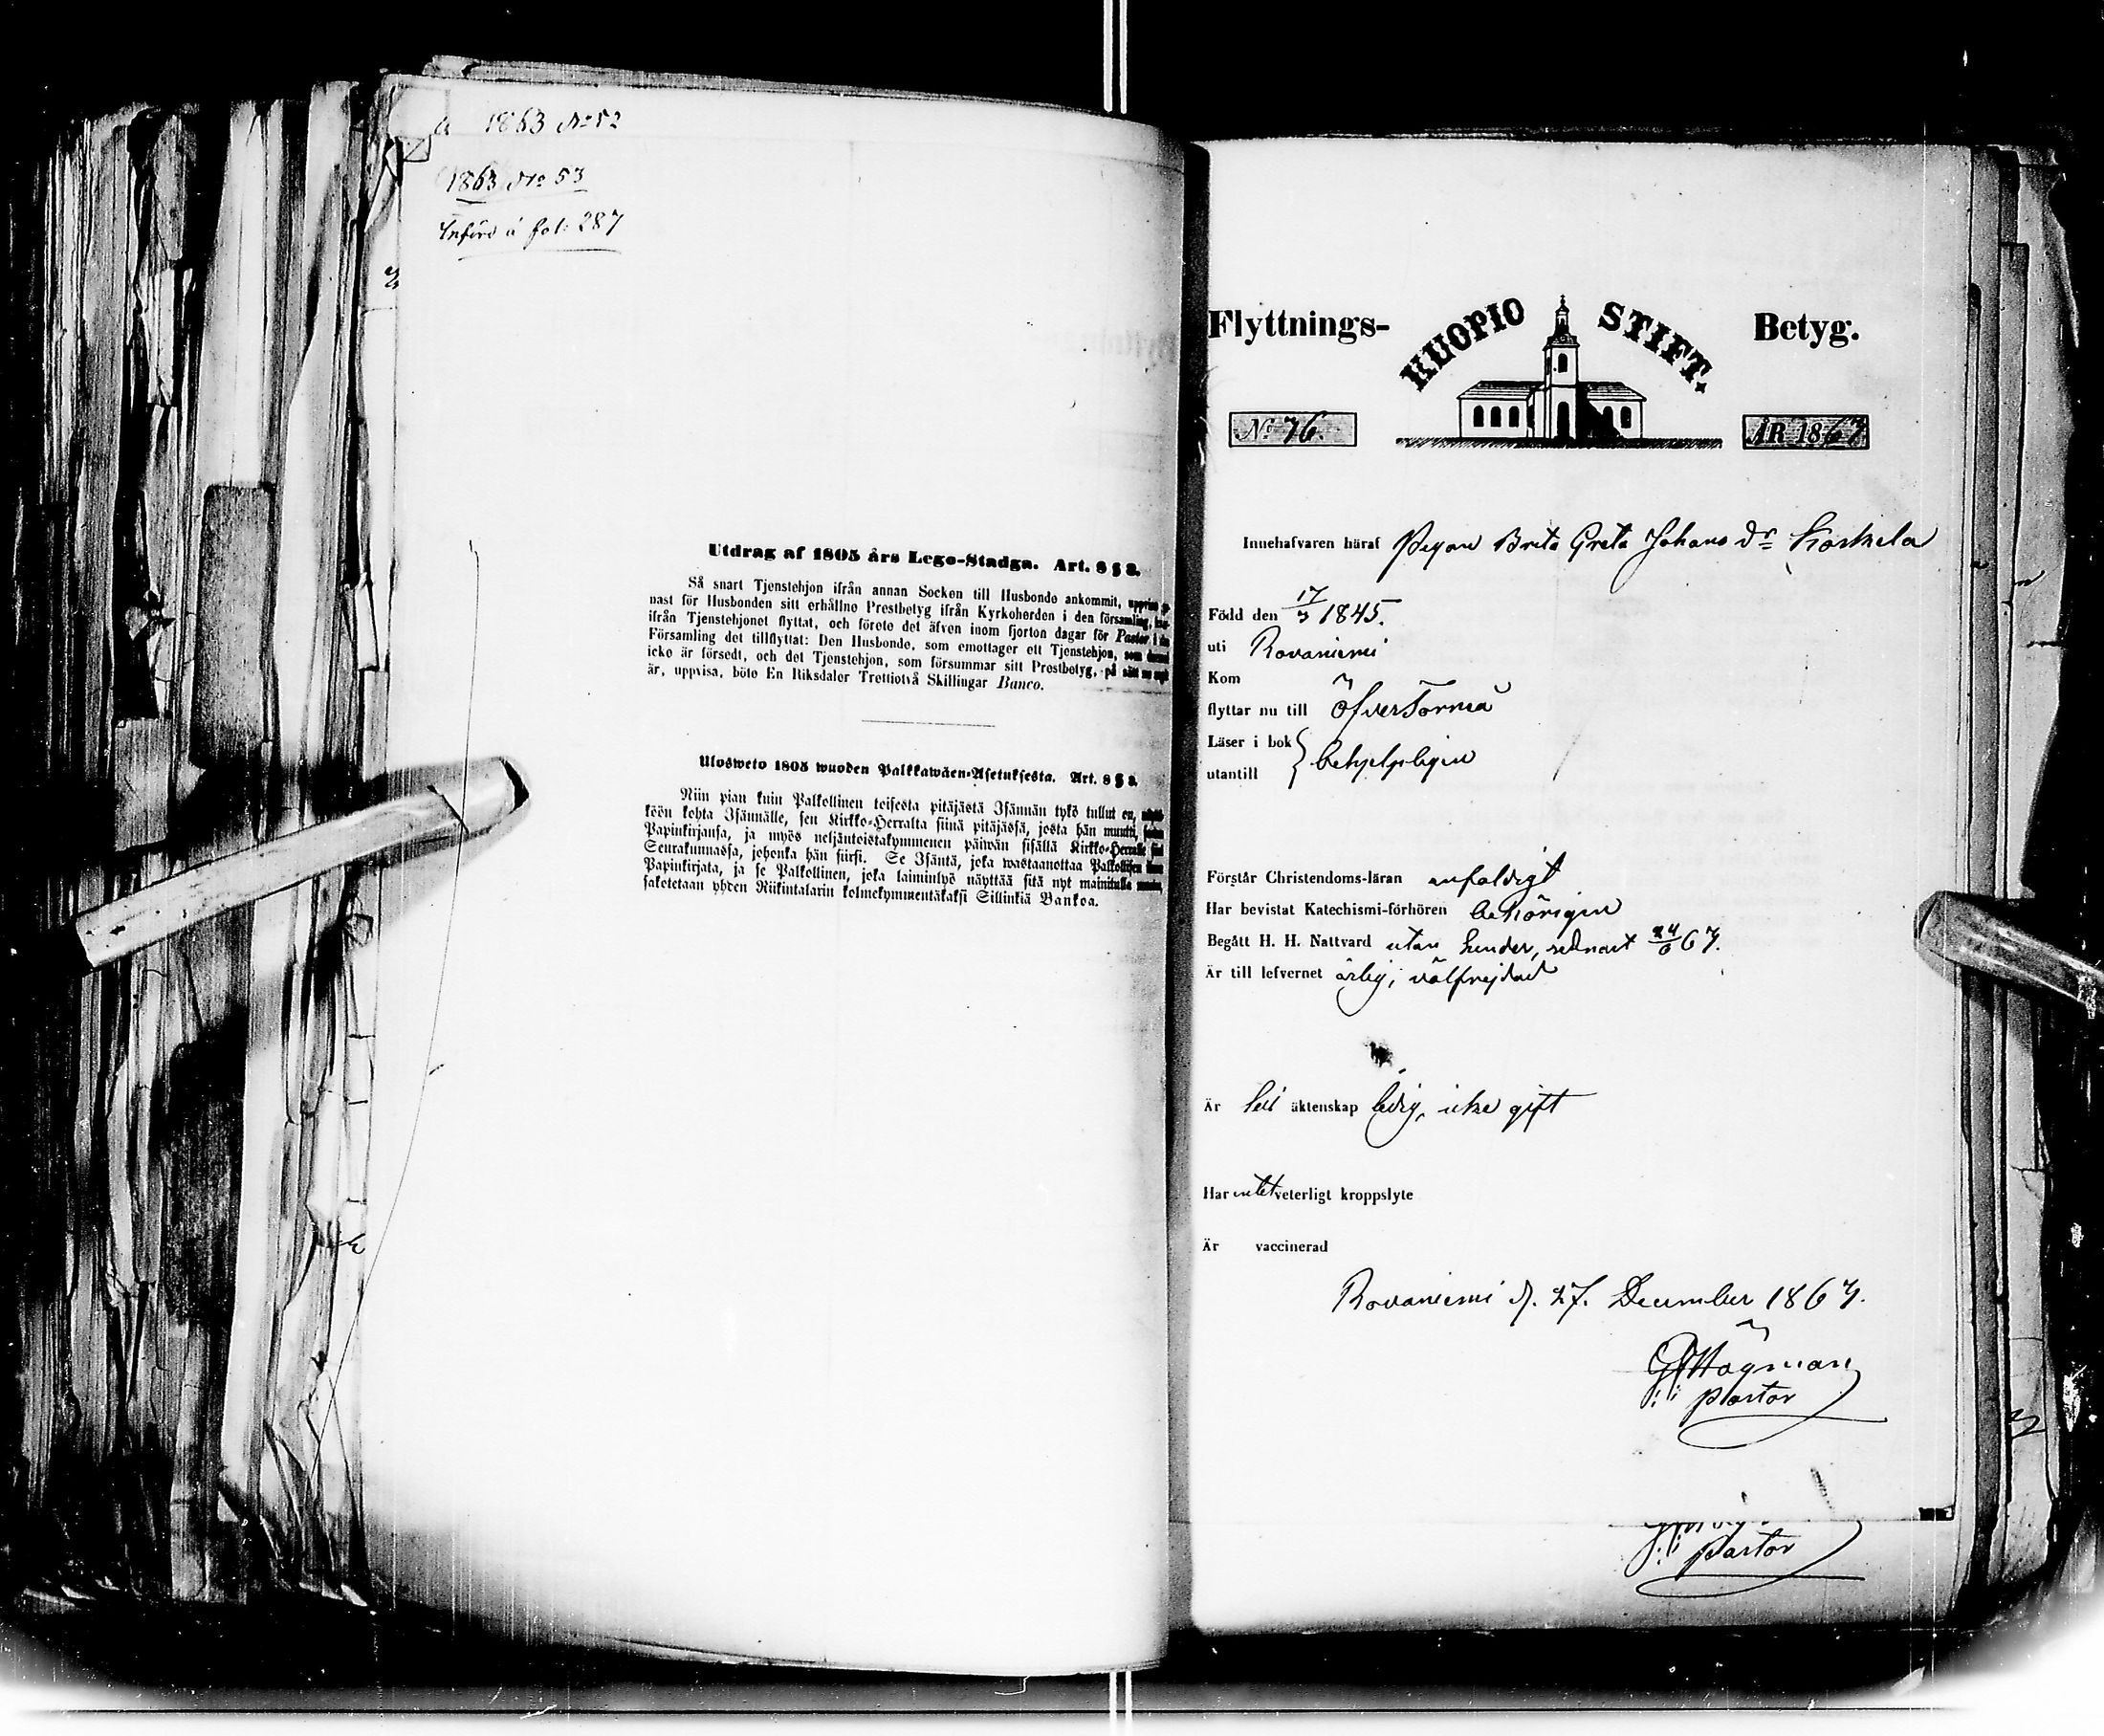 1863 No 52
1863 No 53
Införd å fol: 287
Utdrag af 1805 års Lego-Stadga. Art. 8 § 3.
Så snart Tjenstehjon ifrån annan Socken till Husbonde ankommit,
nast för Husbonden sitt erhållne Prestbetyg ifrån Kyrkoherden i den församling,
ifrån Tjenstehjonet flyttat, och förete det äfven inom fjorton dagar för Pastor i
Församling det tillflyttat: Den Husbonde, som emottager ett Tjenstehjon, som
icke är försedt, och det Tjenstehjon, som försummar sitt Prestbetyg, på sätt
är, uppvisa, böte En Riksdaler Trettiotvå Skillingar Banco.
Ulosweto 1805 wuoden Palkkawäen-Asetuksesta. Art. 8 § 3.
Niin pian kuin Palkollinen toisesta pitäjästä Isännän tykö tullut on,
köön kohta Isännälle, sen Kirkko-Herralta siinä pitäjässä, josta hän muutti,
Papinkirjansa, ja myös neljäntoistakymmenen päiwän sisällä Kirkko-Herralle
Seurakunnassa, johonka hän siirsi. Se Isäntä, joka wastaanottaa Palkollisen
Papinkirjata, ja se Palkollinen, joka laiminlyö näyttää sitä nyt mainitulla
sakotetaan yhden Riikintalarin kolmekymmentäkaksi Sillinkiä Bankoa.
Flyttnings- KUOPIO STIFT. Betyg.
No 76. ÅR 1867
Innehafvaren häraf Pigan Brita Greta Johans dr Koskela
Född den 17/3 1845.
uti Rovaniemi
Kom
flyttar nu till Öfvertorneå
Läser i bok
utantill behjelpligen
Förstår Christendoms-läran enfaldigt
Har bevistat Katechismi-förhören behörigen
Begått H. H. Nattvard utan hinder, sednast 24/6 67.
Är till lefvernet ärlig, välfrejdad
Är till äktenskap ledig, icke gift
Har intet veterligt kroppslyte
Är vaccinerad
Rovaniemi d. 27. December 1867.
Högman
Pastor
Pastor